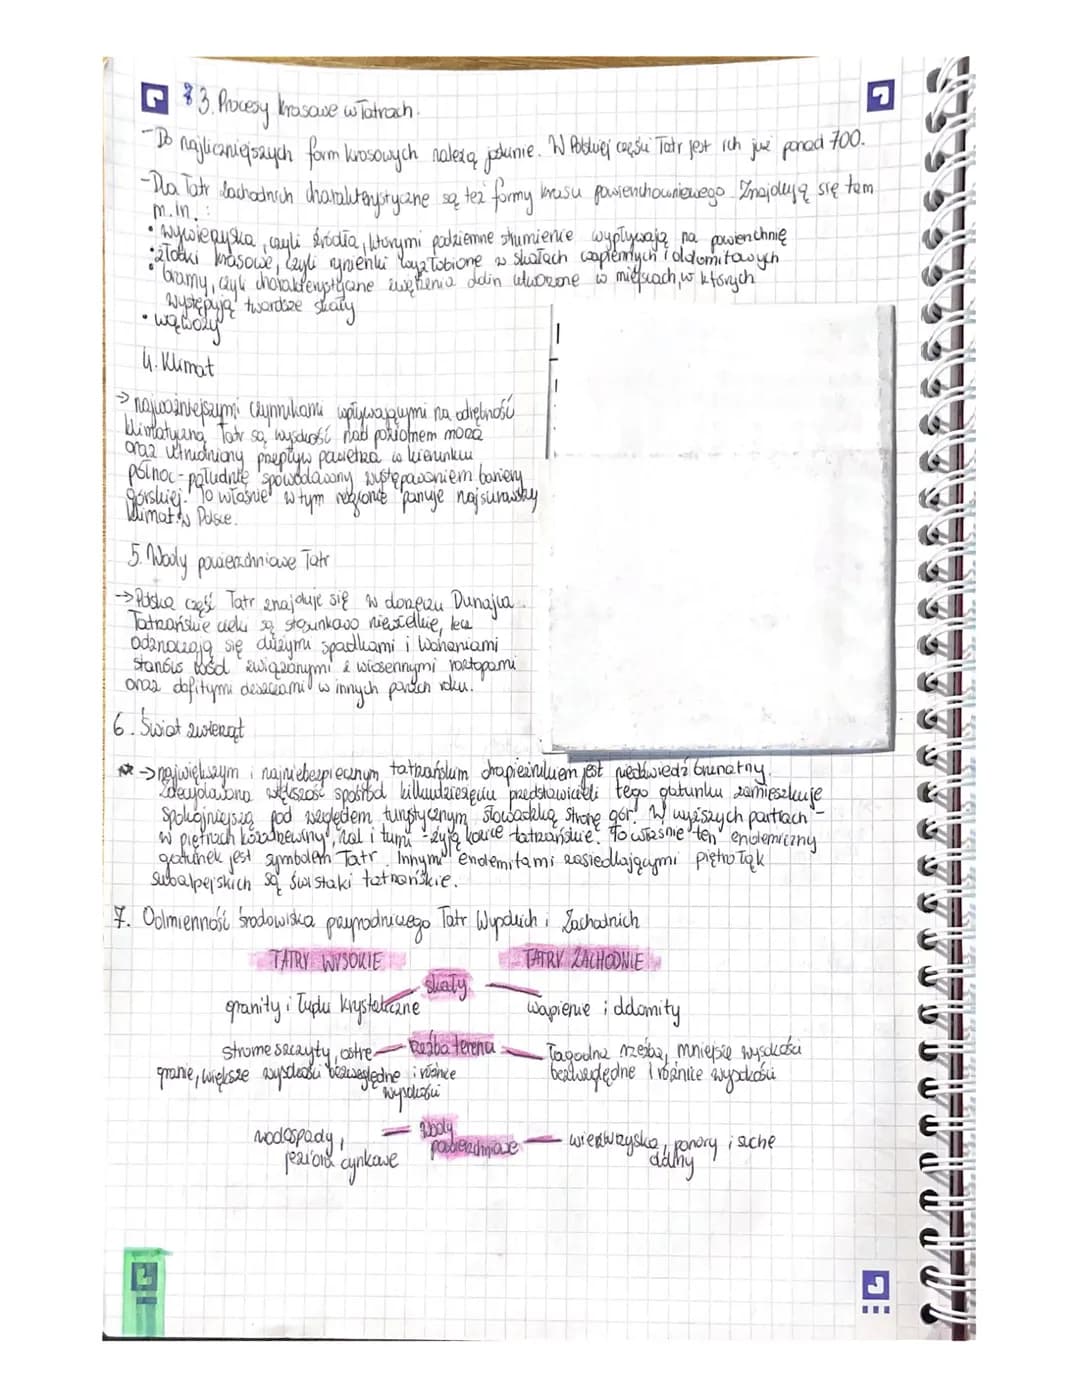 3. Procesy krasowe w Tatrach.
-Do najliczniejszych form krasowych należą jaskinie. W Polskiej części Tatr jest ich już ponad 700.
-Dla Tatr Zachodnich charakterystyczne są też formy krasu powierzchniowego. Znajdują się tam
m.in. :
• wywierzyska, czyli źródła, którymi podziemne strumienie wypływają na powierzchnię
• żłobki krasowe, czyli rynienki wyżłobione w skałach wapiennych i dolomitowych
• bramy, czyli charakterystyczne zwężenia dolin utworzone w miejscach, w których
występują twardsze skały
• wąwozy
4. Klimat
→ najważniejszymi czynnikami wpływającymi na odrębność
klimatyczną Tatr są wysokość nad poziomem morza
oraz utrudniony przepływ powietrza w kierunku
północ - południe spowodowany występowaniem bariery
górskiej. To właśnie w tym regionie panuje najsurowszy
klimat w Polsce.
5. Wody powierzchniowe Tatr
→ Polska część Tatr znajduje się w dorzeczu Dunajca.
Tatrzańskie cieki są stosunkowo niewielkie, lecz
odznaczają się dużymi spadkami i wahaniami
stanów wód związanymi z wiosennymi roztopami
oraz obfitymi deszczami w innych porach roku.
6. Świat zwierząt
→ największym i najniebezpiecznym tatrzańskim drapieżnikiem jest niedźwiedź brunatny.
Zdecydowana większość spośród kilkudziesięciu przedstawicieli tego gatunku zamieszkuje
spokojniejszą pod względem turystycznym słowacką stronę gór. W wyższych partiach -
w piętrach kosodrzewiny, hal i turni - żyją kozice tatrzańskie. To właśnie ten endemiczny
gatunek jest symbolem Tatr. Innymi endemitami zasiedlającymi piętro łąk
subalpejskich są świstaki tatrzańskie.
7. Odmienność środowiska przyrodniczego Tatr Wysokich i Zachodnich
TATRY WYSOKIE TATRY ZACHODNIE
skały
granity i łupki krystaliczne wapienie i dolomity
strome szczyty, ostre rzeźba terenu łagodna rzeźba, mniejsze wysokości
granie, większe wysokości bezwzględne i różnice bezwzględne i różnice wysokości
wysokości
wodospady, wody wierzwzyska, ponory i suche
jeziora cyrkowe powierzchniowe doliny